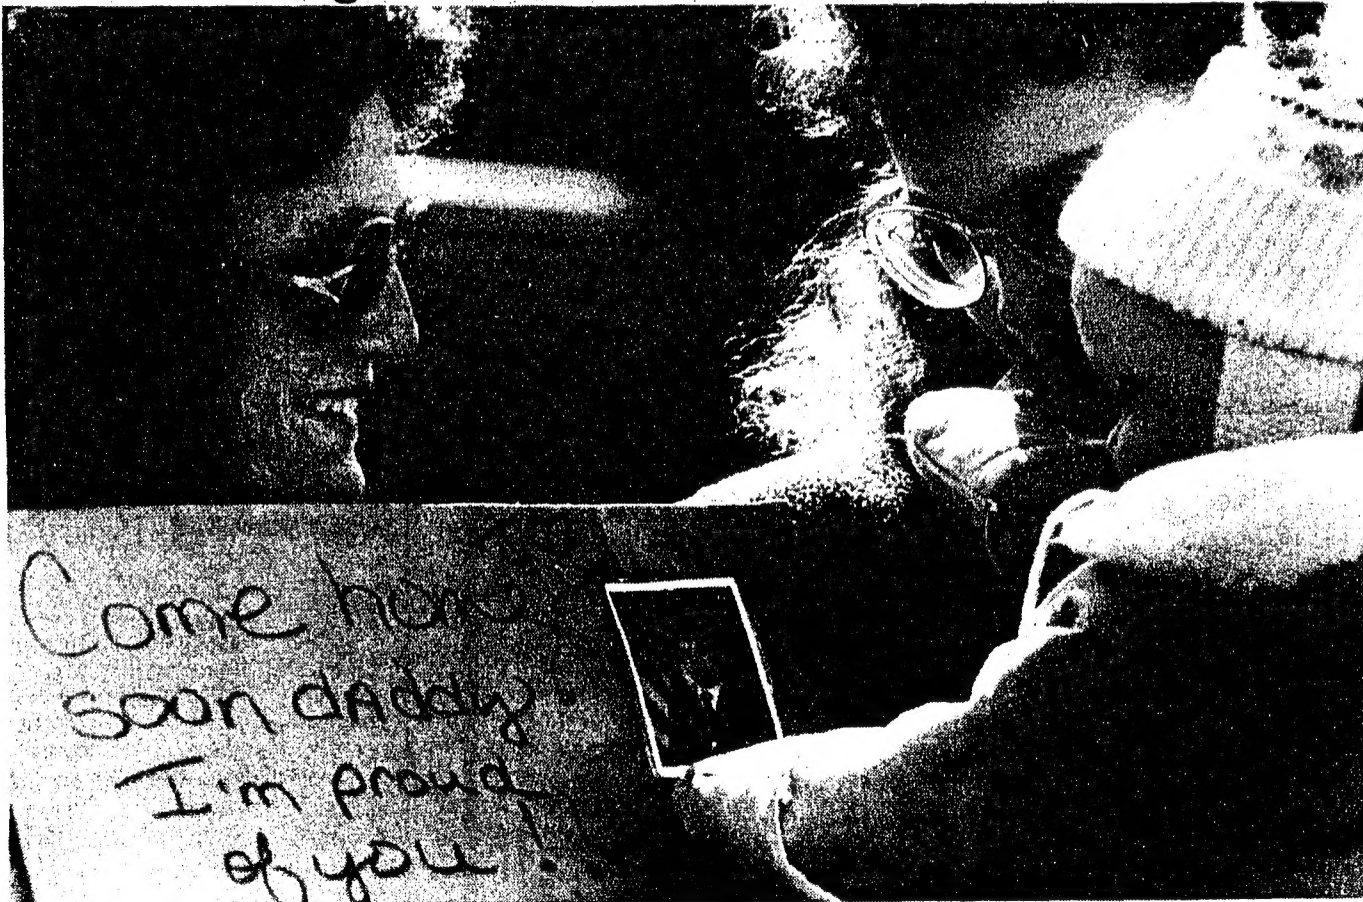 Come home
soon dAddy
I'm proud
of you!